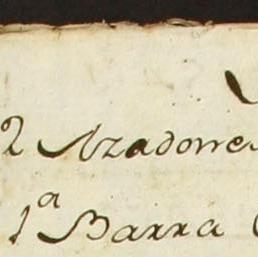 2 Azadones
1ª Barra